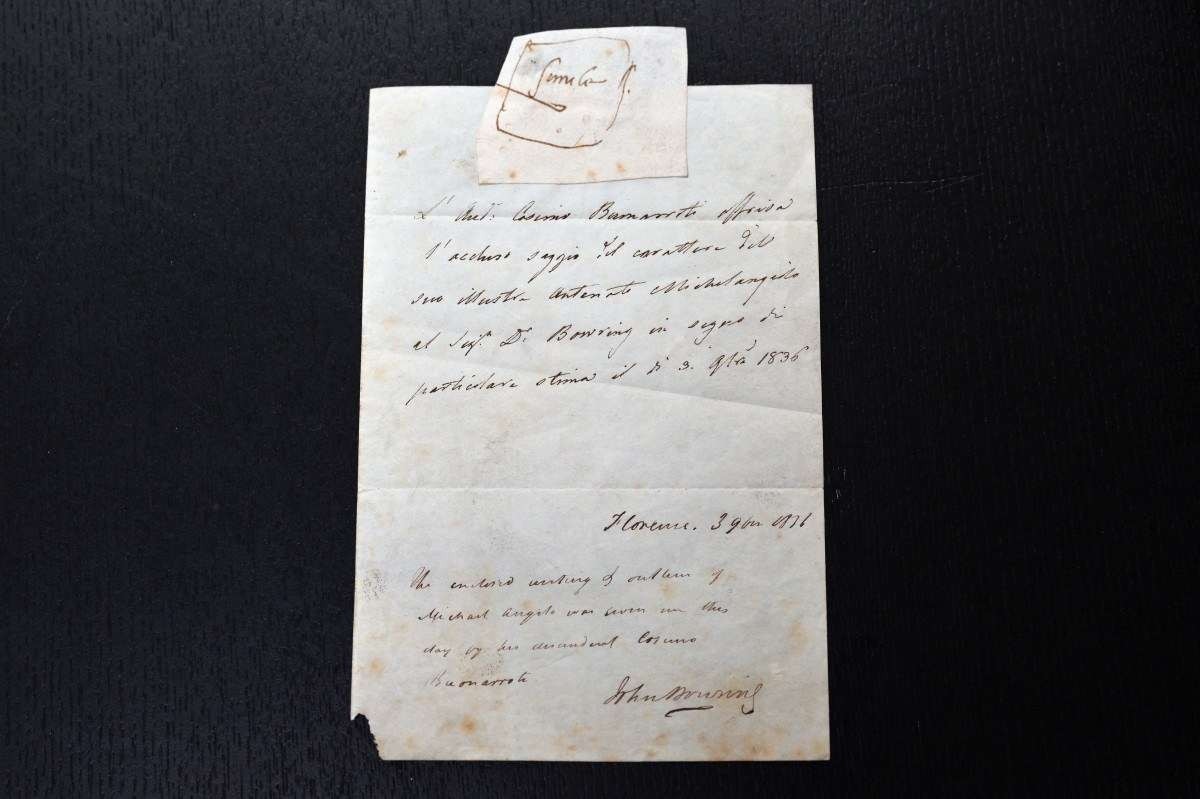 simile
L' Aud: Cosimo Buonarroti offriva
l' accluso saggio del carattere del
suo illustre antenato Michelangelo
al Sigr. Dr. Bowring in segno di
particolare stima il dì 3. 9bre 1836
Florence. 3 9bre 1836
The enclosed writing & outline of
Michael Angelo was given me this
day by his descendant Cosimo
Buonarroti
John Bowring